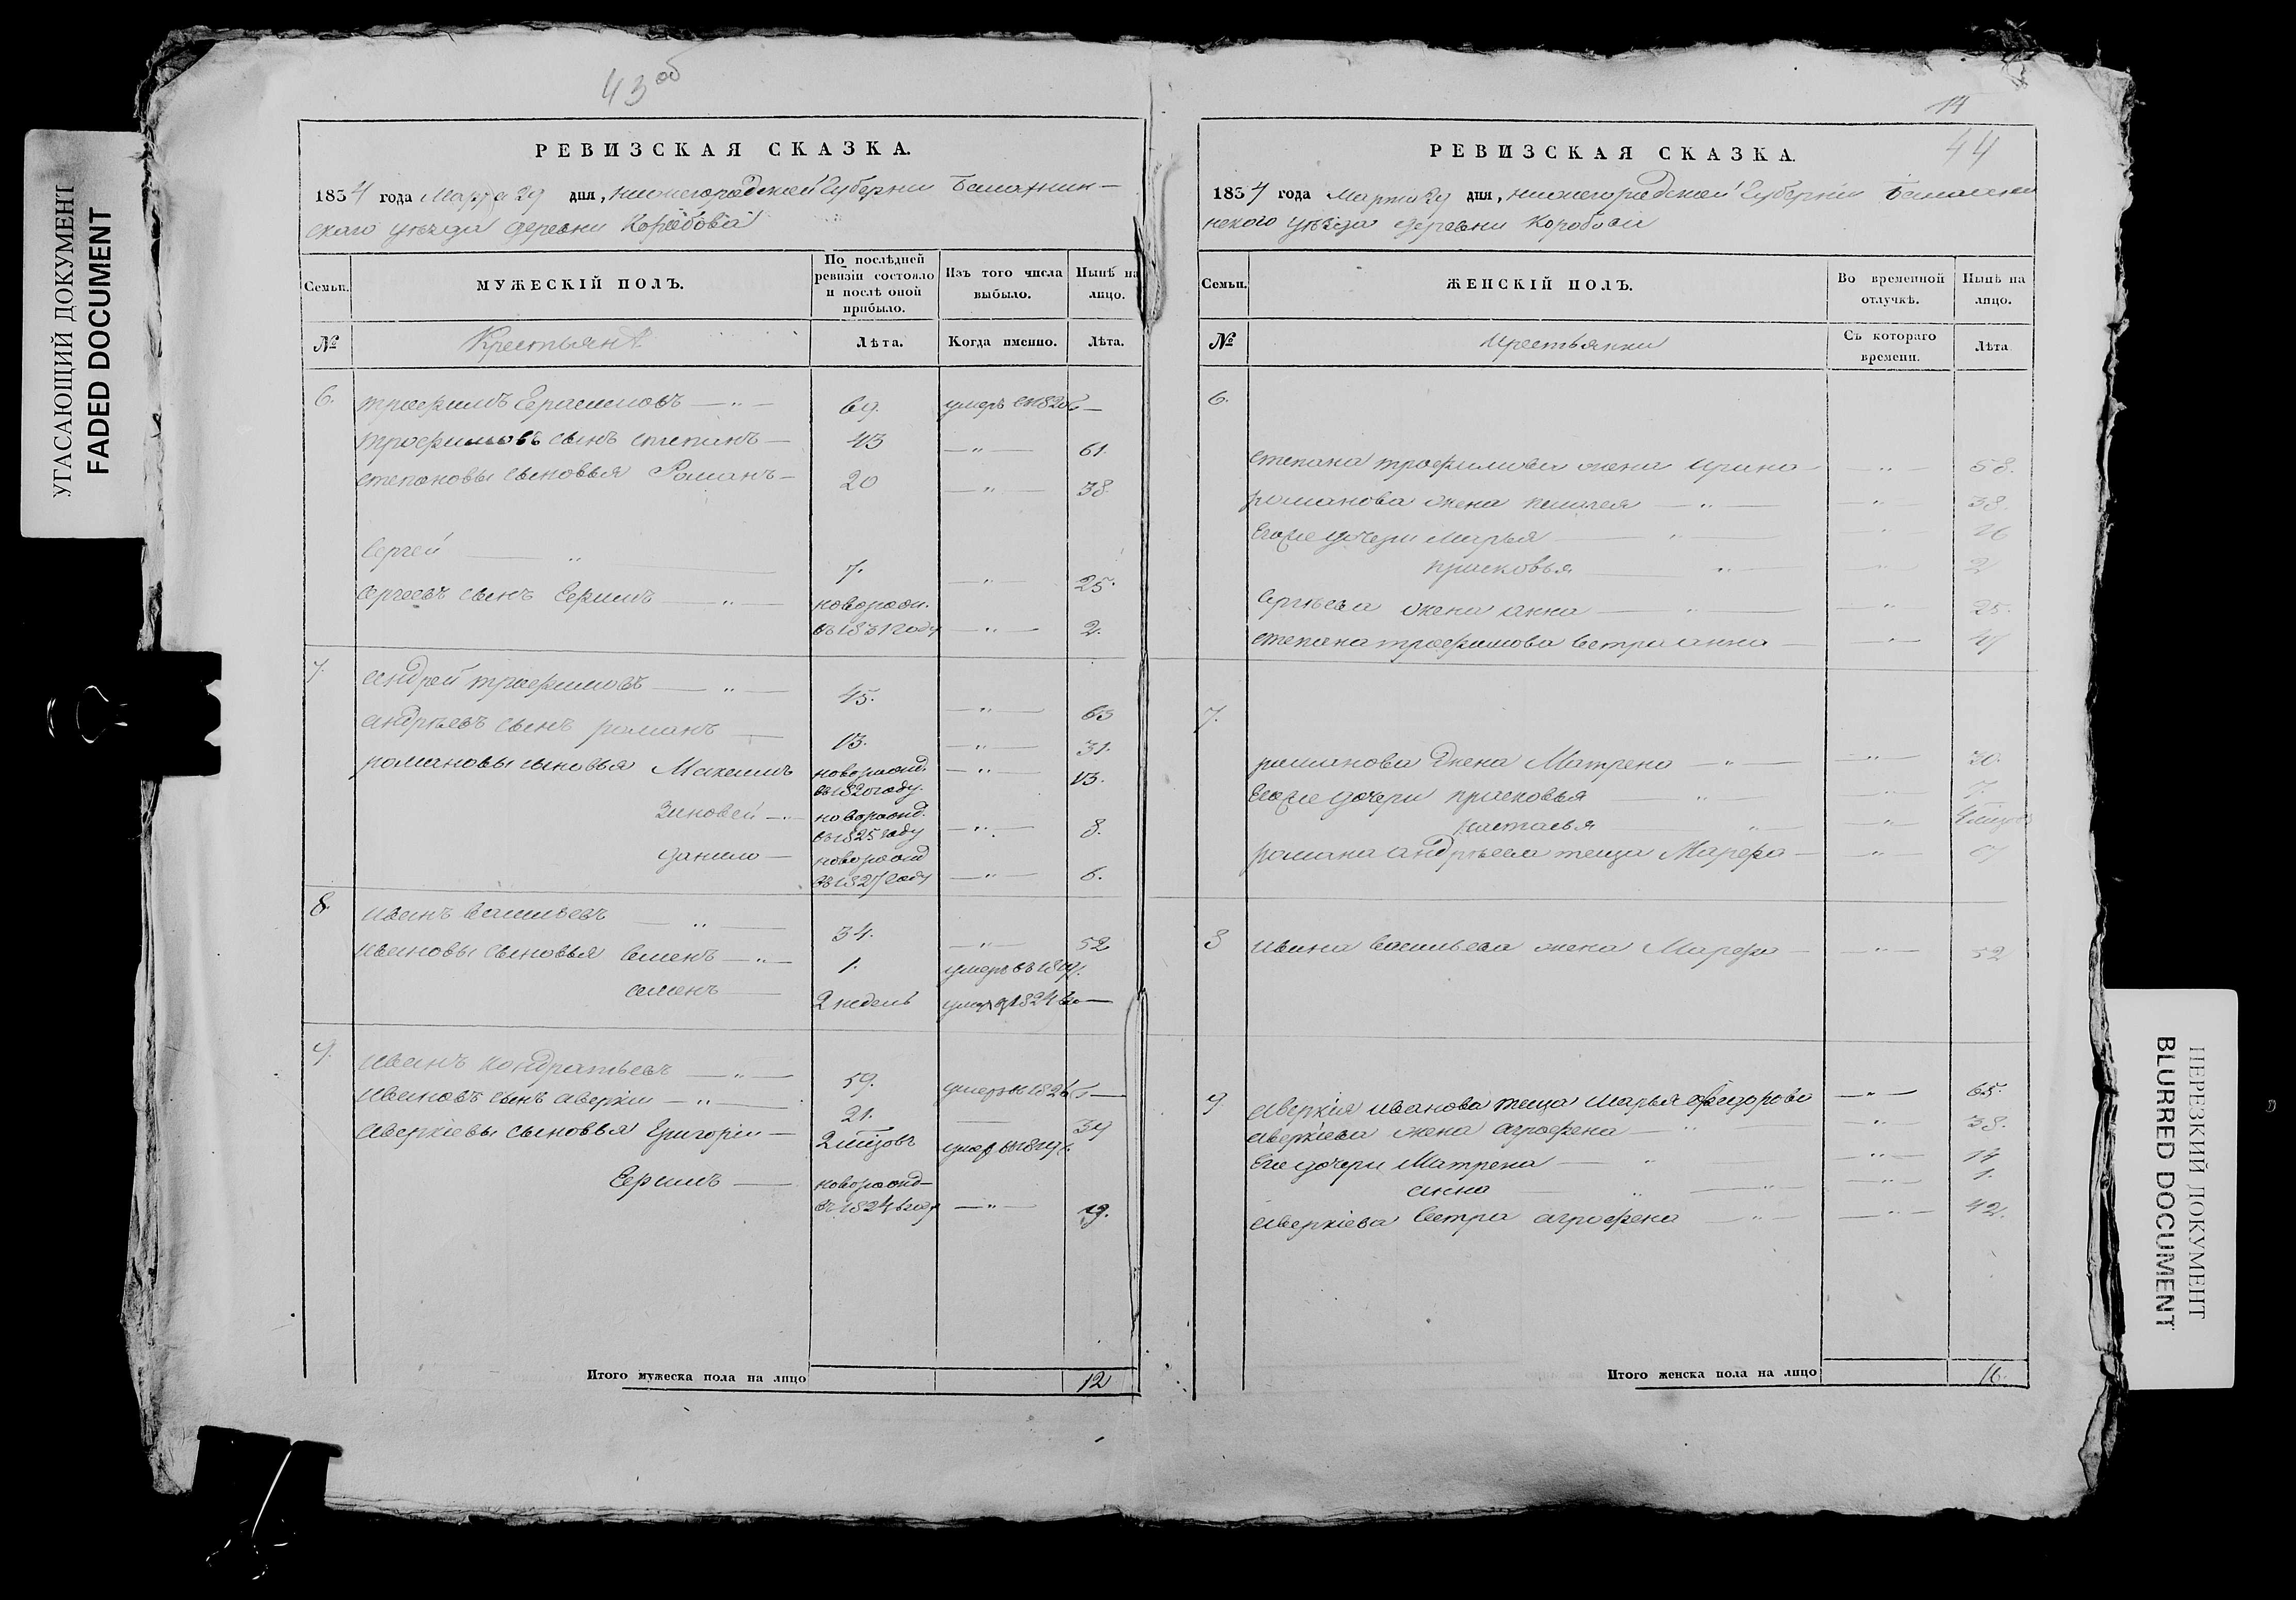 УГАСАЮЩИЙ ДОКУМЕНТ
FADED DOCUMENT
43 об
РЕВИЗСКАЯ СКАЗКА.
1834 года Марта 29 дня, нижегородской Губернии Балахнин-
скаго уѣзда деревни Коробова
Семьи.
МУЖЕСКІЙ ПОЛЪ.
По послѣдней ревизіи состояло и послѣ оной прибыло.
Изъ того числа выбыло.
Нынѣ на лицо.
№
Крестьянѣ
Лѣта.
Когда именно.
Лѣта.
6. трофимъ Герасимовъ — 69. умеръ —
трофимовъ сынъ степанъ — 43 — 61.
степановы сыновья Романъ — 20 — 38.
Сергей — 7. — 25.
сергеевъ сынъ Ефимъ — новорож.
въ 1831 году — 2.
7. андрей трофимовъ — 45. — 63
андрѣевъ сынъ романъ — 13. — 31.
романовы сыновья Максимъ новорожд.
въ 1820 году. — 13.
Зиновей — новорожд.
въ 1825 году — 8.
данило — новорожд
въ 1827 году — 6.
8. иванъ васильевъ — 34. — 52
ивановы сыновья семенъ — 1. умеръ въ 1819.
семенъ — 2 недель умер 1824 —
9. иванъ кондратьевъ — 59. умеръ въ 1826 —
ивановъ сынъ аверкии — 21. — 39
аверкіевы сыновья Григории — 2 мѣцовъ умер въ 1819
Ефимъ — новорожд —
въ 1824 году — 9.
Итого мужеска пола на лицо 12
14
44
РЕВИЗСКАЯ СКАЗКА.
1834 года Марта 29 дня, нижегородской Губерніи Балахнин
нскаго уѣзда деревни Коробова
Семьи.
ЖЕНСКІЙ ПОЛЪ.
Во временной отлучкѣ.
Нынѣ на лицо.
№
крестьянки
Съ котораго времени.
Лѣта
6.
степана трофимова жена ирина — 58.
романова жена — 38.
Его же дочери марья — 16
прасковья — 2
Сергѣева жена анна — 25.
степана трофимова сестра анна —
7.
романова жена Матрена — 30.
Его же дочери прасковья — 7.
настасья —
романа андрѣева теща Марфа —
8 ивана васильева жена Марфа — 52
9 аверкія иванова теща марья федорова — 65.
аверкіева жена агрофена — 38.
Его дочери Матрена — 14
анна — 1.
аверкіева сестра агрофена — 42.
Итого женска пола на лицо 16.
ПЕРЕЗКИЙ ДОКУМЕНТ
BLURRED DOCUMENT